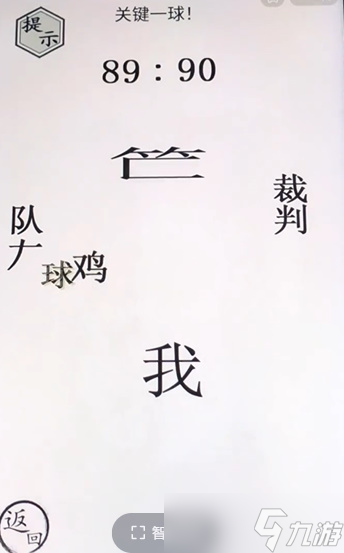 提示
关键一球!
89 : 90
裁判
队
球鸡
我
返回
智
九游